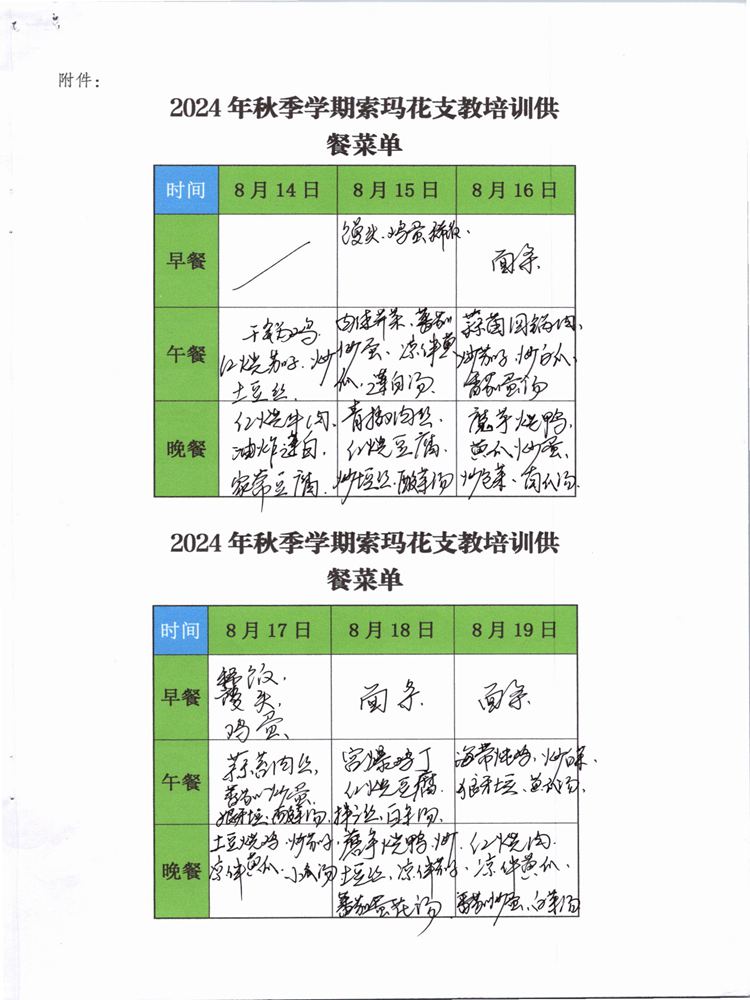 附件：
2024 年秋季学期索玛花支教培训供
餐菜单
时间 8月14日 8月15日 8月16日
早餐
馒头、鸡蛋、稀饭、
面条
午餐
干锅鸡、
红烧茄子、炒
土豆丝、
炒蛋、凉伴黄
瓜、莲白汤、
蒜苗回锅肉、
炒茄子、炒白瓜、
番茄蛋汤
晚餐
红烧牛肉
油炸莲白、
家常豆腐
青椒肉丝、
红烧豆腐、
炒土豆丝、酸菜汤
魔芋烧鸭、
黄瓜炒蛋、
2024 年秋季学期索玛花支教培训供
餐菜单
时间 8月17日 8月18日 8月19日
早餐
稀饭、
馒头、
鸡蛋、
面条
面条
午餐
蒜苔肉丝、
番茄炒蛋、
狼牙土豆、酸菜汤、
宫爆鸡丁
红烧豆腐、
海带炖鸡、炒白菜、
狼牙土豆、黄瓜汤、
晚餐
土豆烧鸡、炒茄子、
凉伴黄瓜、小瓜汤
魔芋烧鸭、炒
土豆丝、凉伴茄子、
番茄蛋花汤
红烧肉、
凉伴黄瓜、
番茄炒蛋、白菜汤